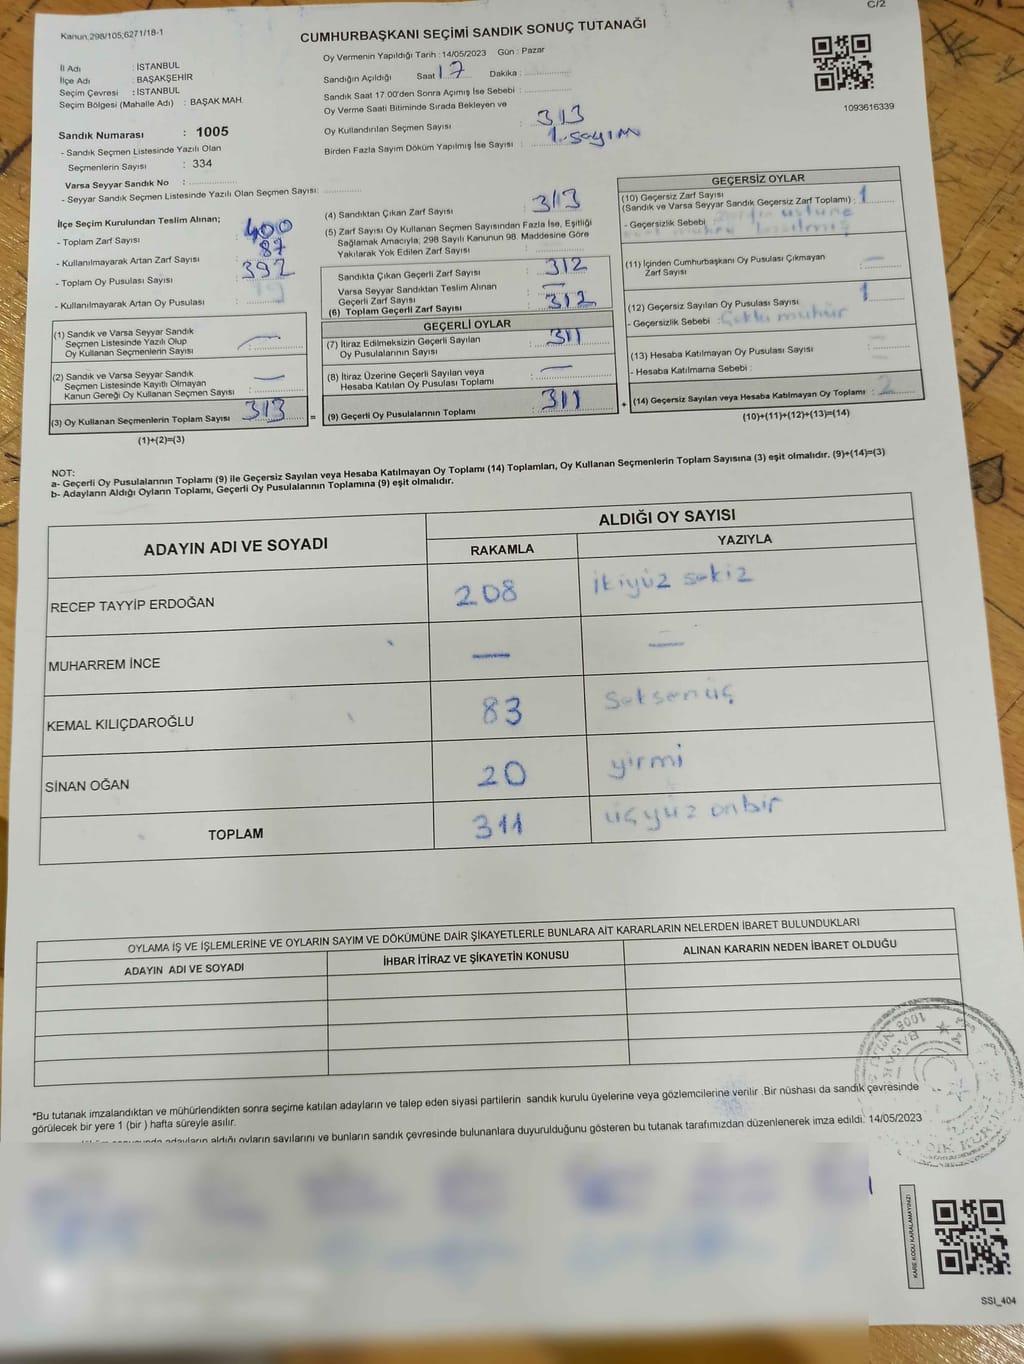 C/2
Kanun.298/105,6271/18-1
CUMHURBAŞKANI SEÇİMİ SANDIK SONUÇ TUTANAĞI
İl Adı : İSTANBUL
İlçe Adı : BAŞAKŞEHİR
Seçim Çevresi : İSTANBUL
Seçim Bölgesi (Mahalle Adı) : BAŞAK MAH.
Sandık Numarası : 1005
- Sandık Seçmen Listesinde Yazılı Olan
Seçmenlerin Sayısı : 334
Varsa Seyyar Sandık No :
- Seyyar Sandık Seçmen Listesinde Yazılı Olan Seçmen Sayısı:
Oy Vermenin Yapıldığı Tarih : 14/05/2023 Gün : Pazar
Sandığın Açıldığı Saat 17 Dakika :
Sandık Saat 17.00'den Sonra Açımış İse Sebebi :
Oy Verme Saati Bitiminde Sırada Bekleyen ve
Oy Kullandırılan Seçmen Sayısı : 313
Birden Fazla Sayım Döküm Yapılmış İse Sayısı : 1. sayım
1093616339
İlçe Seçim Kurulundan Teslim Alınan;
- Toplam Zarf Sayısı : 400
- Kullanılmayarak Artan Zarf Sayısı : 87
- Toplam Oy Pusulası Sayısı : 392
- Kullanılmayarak Artan Oy Pusulası :
(1) Sandık ve Varsa Seyyar Sandık
Seçmen Listesinde Yazılı Olup
Oy Kullanan Seçmenlerin Sayısı : —
(2) Sandık ve Varsa Seyyar Sandık
Seçmen Listesinde Kayıtlı Olmayan
Kanun Gereği Oy Kullanan Seçmen Sayısı : —
(3) Oy Kullanan Seçmenlerin Toplam Sayısı : 313 =
(1)+(2)=(3)
(4) Sandıktan Çıkan Zarf Sayısı : 313
(5) Zarf Sayısı Oy Kullanan Seçmen Sayısından Fazla İse, Eşitliği
Sağlamak Amacıyla, 298 Sayılı Kanunun 98. Maddesine Göre
Yakılarak Yok Edilen Zarf Sayısı :
Sandıkta Çıkan Geçerli Zarf Sayısı : 312
Varsa Seyyar Sandıktan Teslim Alınan
Geçerli Zarf Sayısı : —
(6) Toplam Geçerli Zarf Sayısı : 312
GEÇERLİ OYLAR
(7) İtiraz Edilmeksizin Geçerli Sayılan
Oy Pusulalarının Sayısı : 311
(8) İtiraz Üzerine Geçerli Sayılan veya
Hesaba Katılan Oy Pusulası Toplamı : —
(9) Geçerli Oy Pusulalarının Toplamı : 311 +
GEÇERSİZ OYLAR
(10) Geçersiz Zarf Sayısı
(Sandık ve Varsa Seyyar Sandık Geçersiz Zarf Toplamı) : 1
- Geçersizlik Sebebi : üstüne
(11) İçinden Cumhurbaşkanı Oy Pusulası Çıkmayan
Zarf Sayısı : —
(12) Geçersiz Sayılan Oy Pusulası Sayısı : 1
- Geçersizlik Sebebi : Çoklu mühür
(13) Hesaba Katılmayan Oy Pusulası Sayısı : —
- Hesaba Katılmama Sebebi :
(14) Geçersiz Sayılan veya Hesaba Katılmayan Oy Toplamı : 2
(10)+(11)+(12)+(13)=(14)
NOT:
a- Geçerli Oy Pusulalarının Toplamı (9) ile Geçersiz Sayılan veya Hesaba Katılmayan Oy Toplamı (14) Toplamları, Oy Kullanan Seçmenlerin Toplam Sayısına (3) eşit olmalıdır. (9)+(14)=(3)
b- Adayların Aldığı Oyların Toplamı, Geçerli Oy Pusulalarının Toplamına (9) eşit olmalıdır.
ADAYIN ADI VE SOYADI ALDIĞI OY SAYISI
RAKAMLA YAZIYLA
RECEP TAYYİP ERDOĞAN 208 ikiyüz sekiz
MUHARREM İNCE — —
KEMAL KILIÇDAROĞLU 83 Seksenüç
SİNAN OĞAN 20 yirmi
TOPLAM 311 üçyüz onbir
OYLAMA İŞ VE İŞLEMLERİNE VE OYLARIN SAYIM VE DÖKÜMÜNE DAİR ŞİKAYETLERLE BUNLARA AİT KARARLARIN NELERDEN İBARET BULUNDUKLARI
ADAYIN ADI VE SOYADI İHBAR İTİRAZ VE ŞİKAYETİN KONUSU ALINAN KARARIN NEDEN İBARET OLDUĞU
*Bu tutanak imzalandıktan ve mühürlendikten sonra seçime katılan adayların ve talep eden siyasi partilerin sandık kurulu üyelerine veya gözlemcilerine verilir .Bir nüshası da sandık çevresinde
görülecek bir yere 1 (bir ) hafta süreyle asılır.
adayların aldığı oyların sayılarını ve bunların sandık çevresinde bulunanlara duyurulduğunu gösteren bu tutanak tarafımızdan düzenlenerek imza edildi. 14/05/2023
KARE KODU KARALAMAYINIZ!
SSI_404